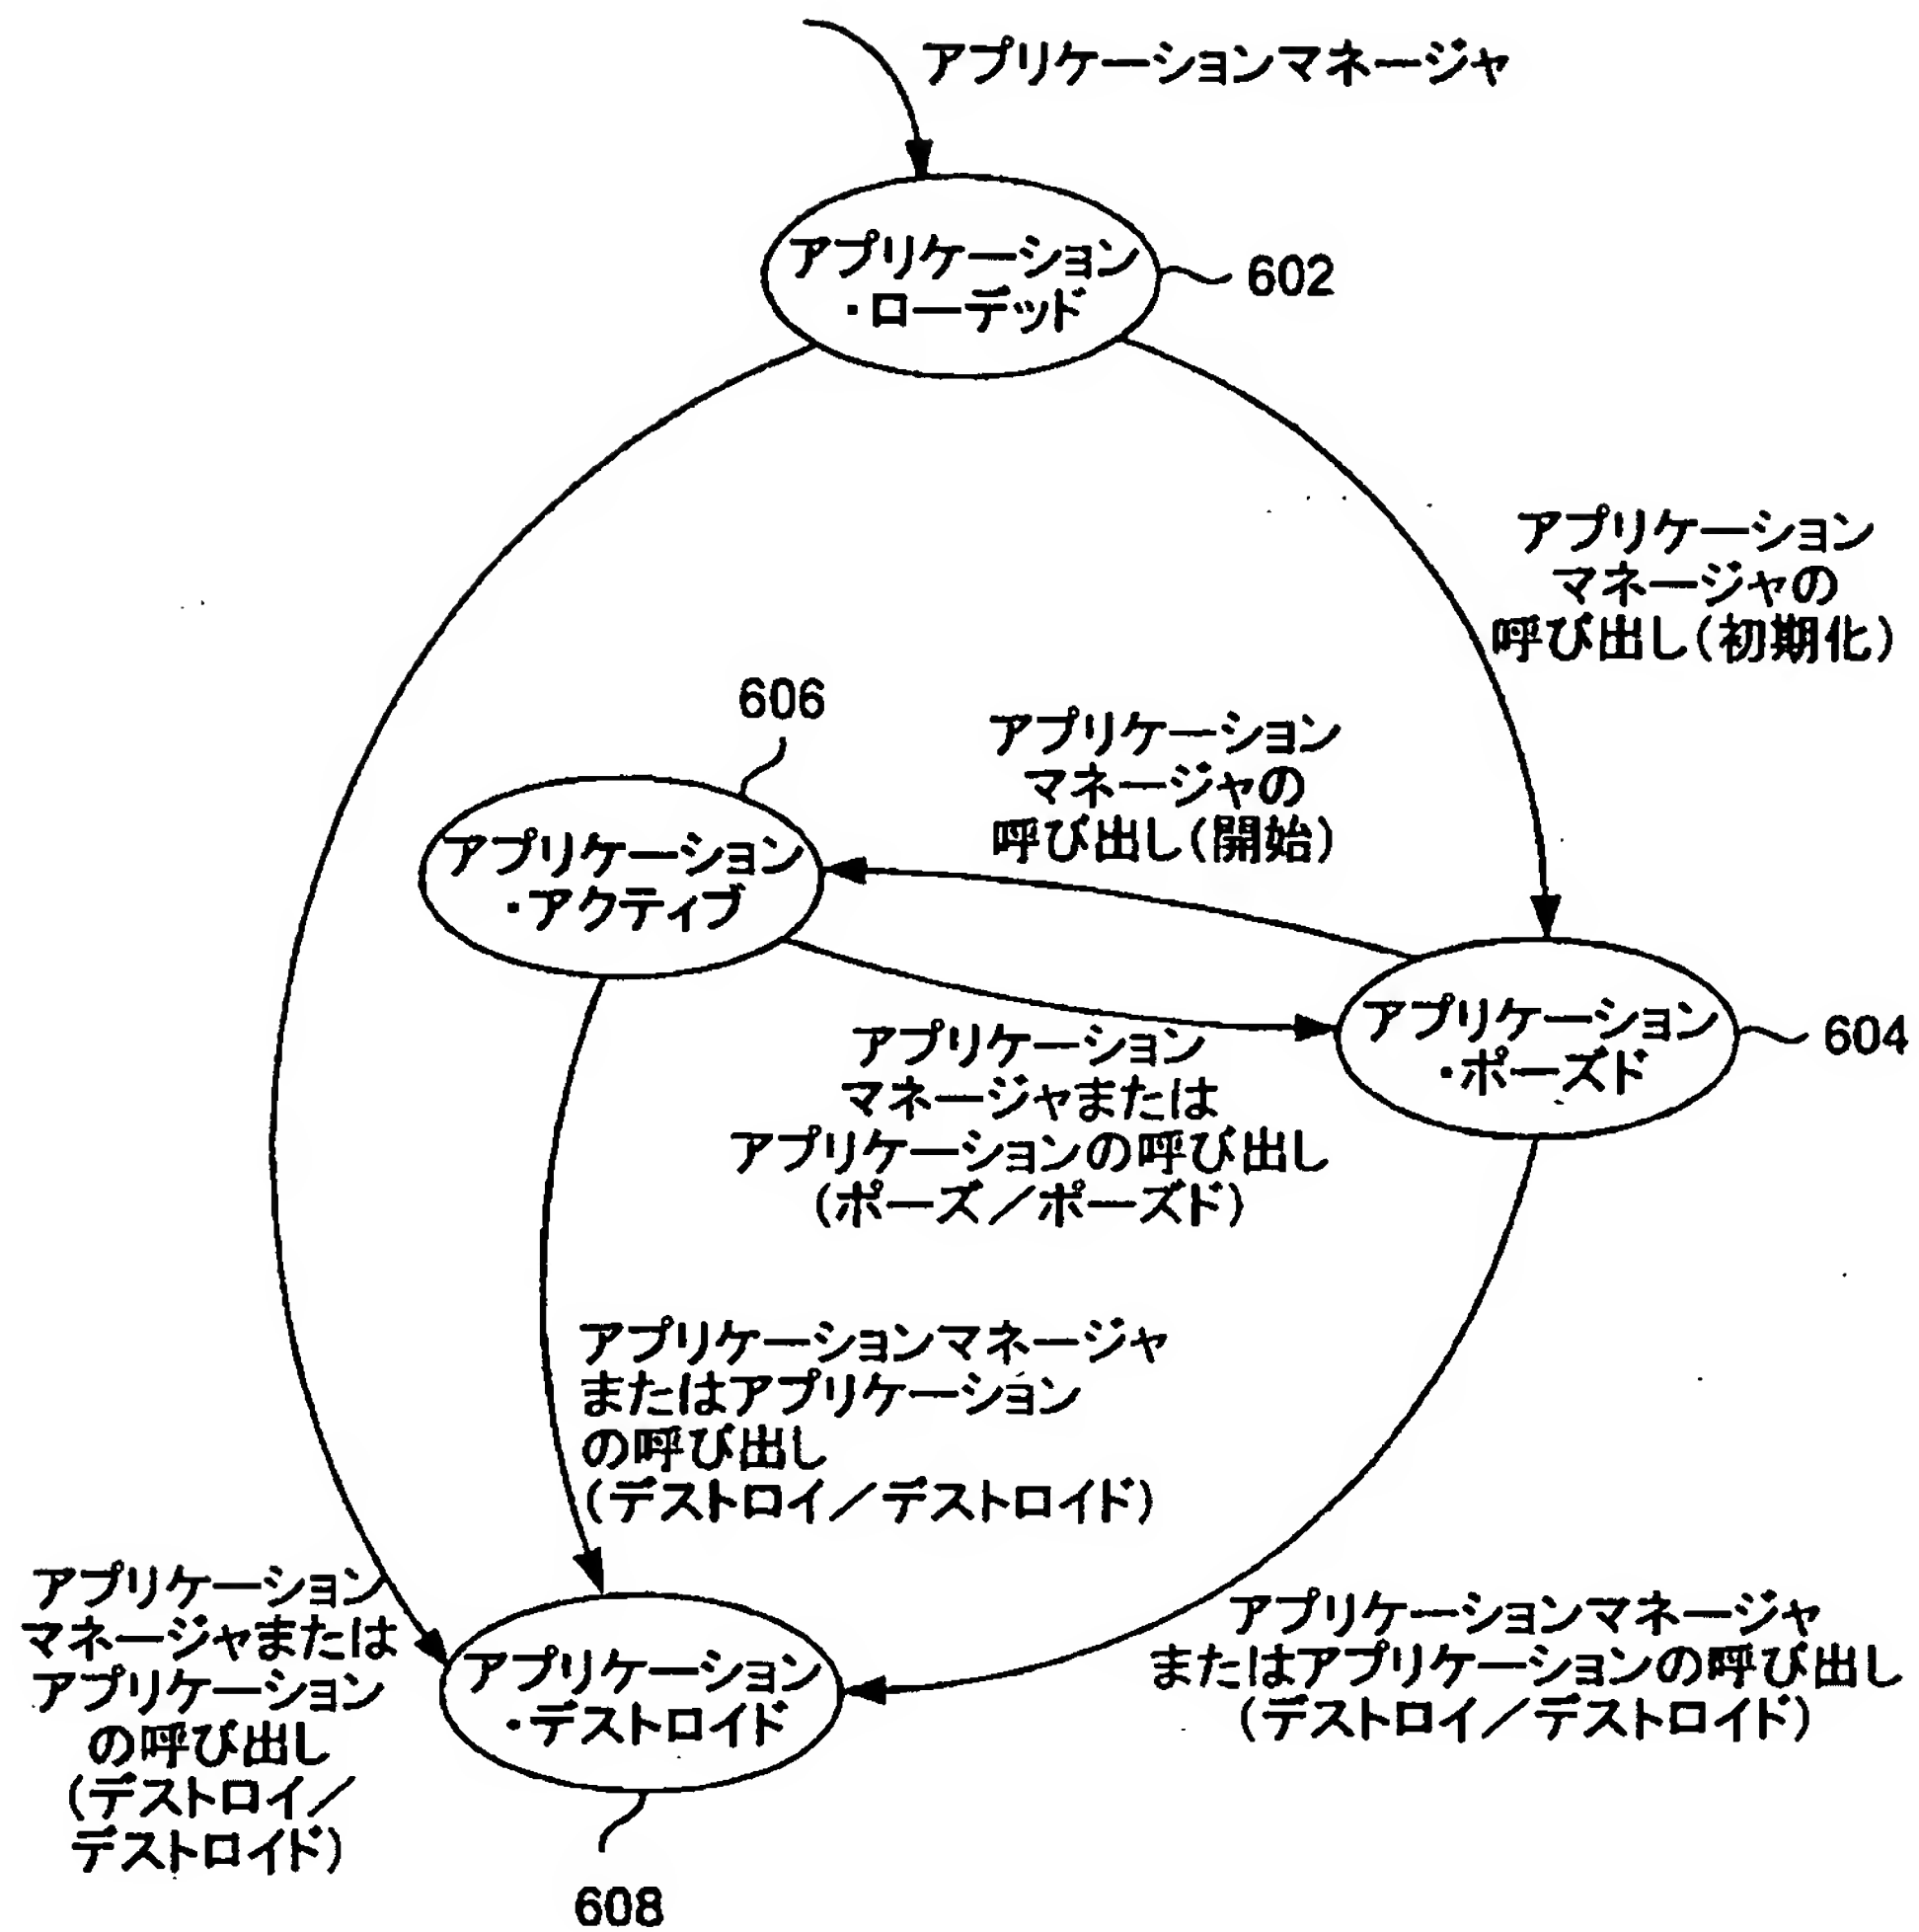 アプリケーションマネージャ
アプリケーション
・ローデッド
602
アプリケーション
マネージャの
呼び出し(初期化)
606
アプリケーション
マネージャの
呼び出し(開始)
アプリケーション
・アクティブ
アプリケーション
・ポーズド
604
アプリケーション
マネージャまたは
アプリケーションの呼び出し
(ポーズ/ポーズド)
アプリケーションマネージャ
またはアプリケーション
の呼び出し
(デストロイ/デストロイド)
アプリケーション
マネージャまたは
アプリケーション
の呼び出し
(デストロイ/
デストロイド)
アプリケーション
・デストロイド
アプリケーションマネージャ
またはアプリケーションの呼び出し
(デストロイ/デストロイド)
608